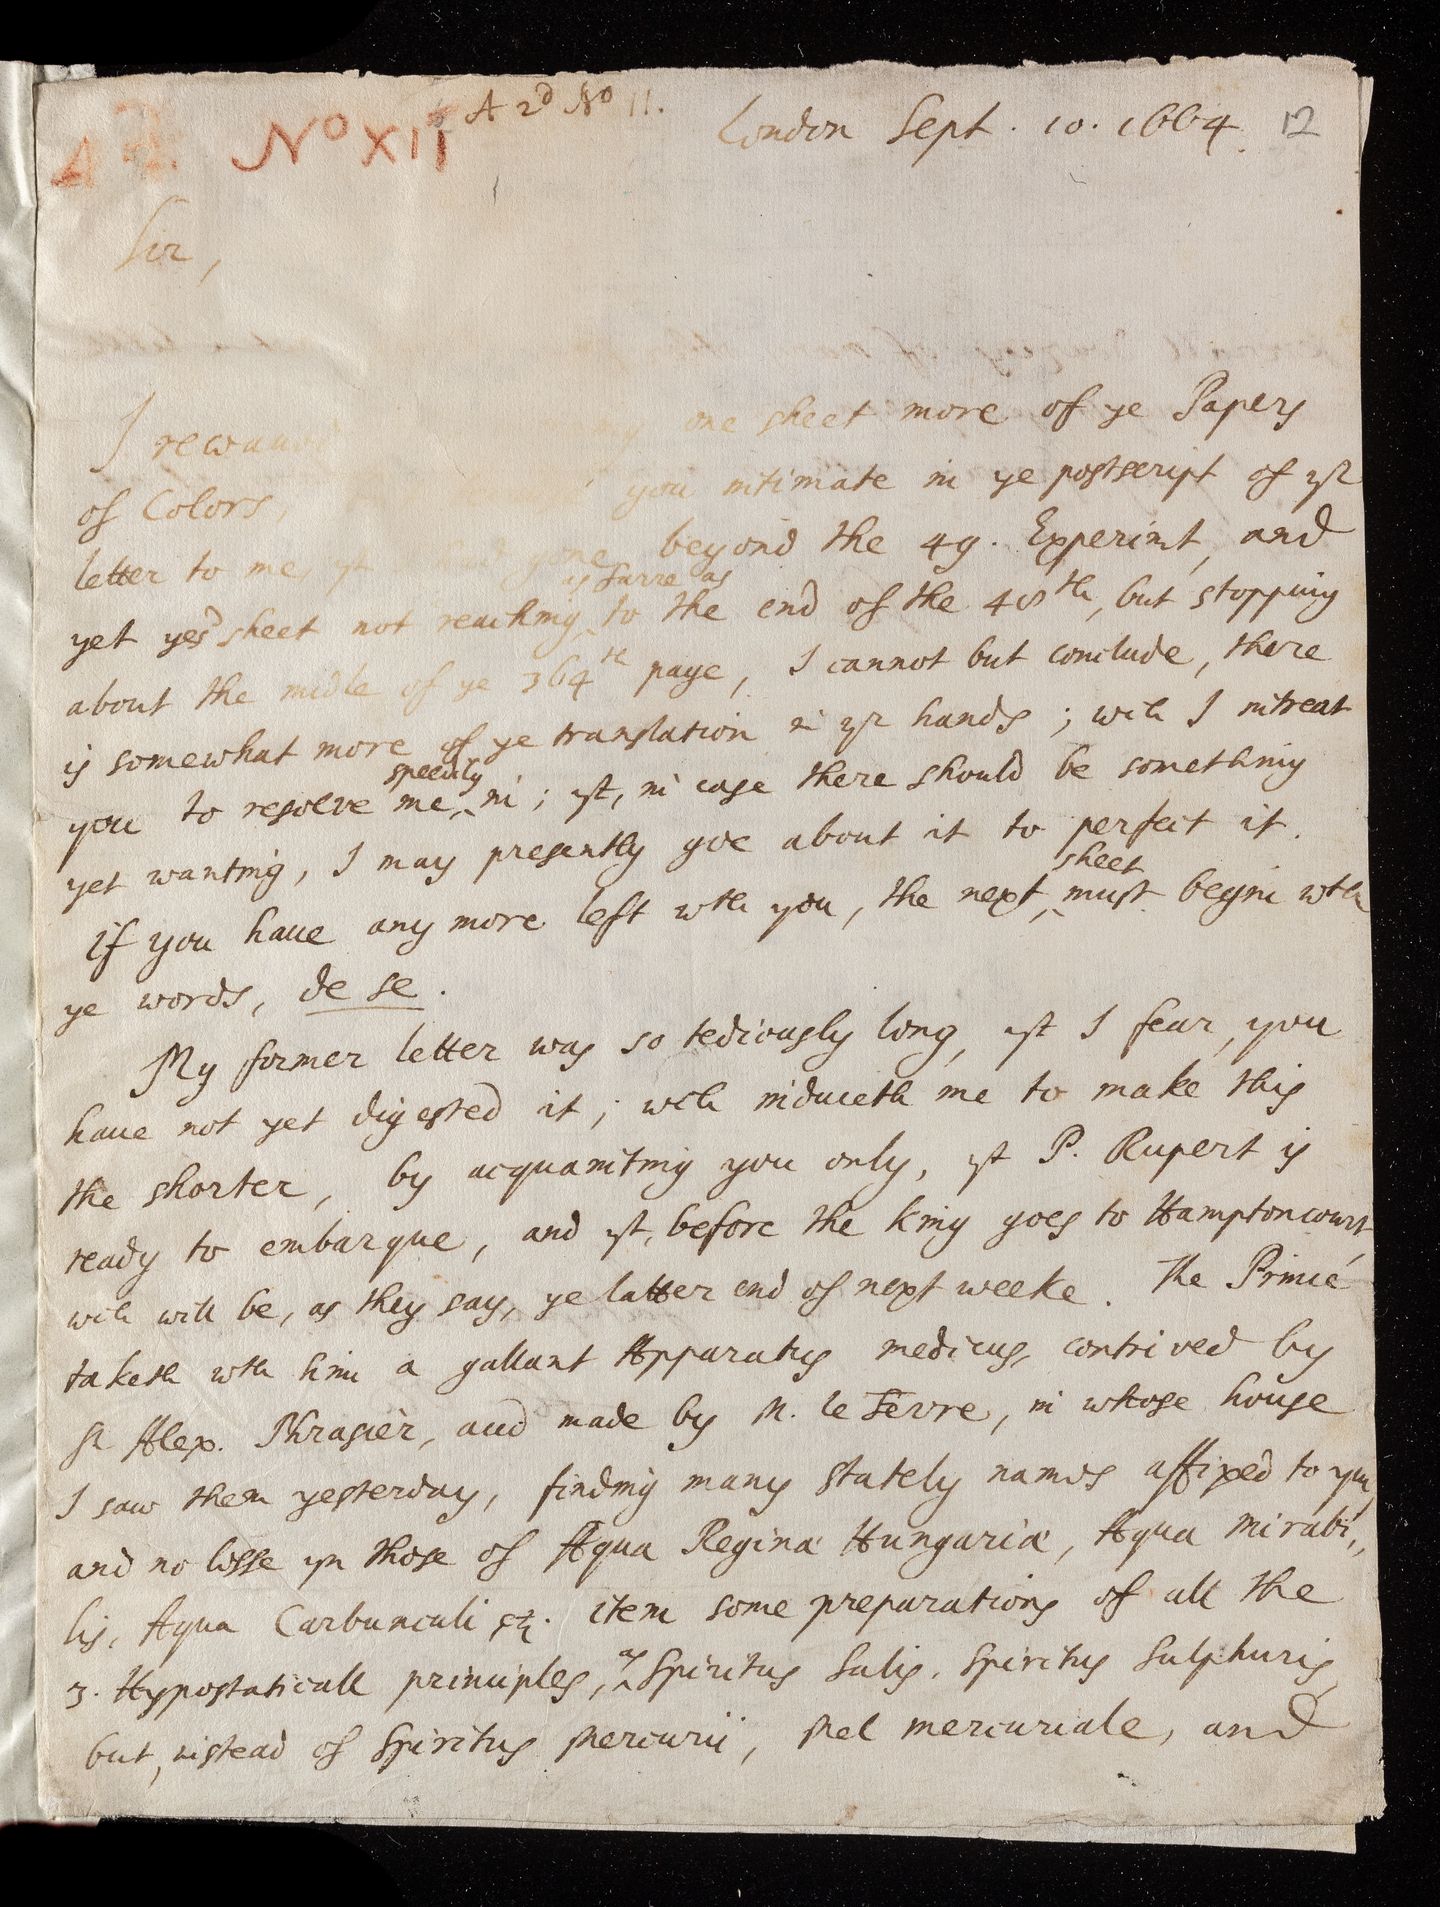 A 2d No 11.
No XII
London Sept. 10. 1664. 12
Sir,
I one sheet more of ye Papers
of Colors, you intimate in ye postscript of yr
letter to me, yt gone beyond the 49. Experimt, and
yet yesd sheet not reaching as farre as to the end of the 48th, but stopping
about the midle of ye 364th page, I cannot but conclude, there
is somewhat more of ye translation in yr hands; wch I intreat
you to resolve me speedily in; yt, in case there should be something
yet wanting, I may presently goe about it to perfect it.
If you haue any more left wth you, the next sheet must begin wth
ye words, de se.
My former letter was so tediously long, yt I fear, you
haue not yet digested it; wch induceth me to make this
the shorter, by acquainting you only, yt P. Rupert is
ready to embarque, and yt, before the King goes to Hamptoncourt,
wch will be, as they say, ye latter end of next weeke. The Prince
taketh wth him a gallant Apparatus medicus, contrived by
Sr Alex. Phrasier, and made by M. le Fevre, in whose house
I saw them yesterday, finding many stately names affixed to ym,
and no lesse yn those of Aqua Reginæ Hungariæ, Aqua Mirabi,,
lis, Aqua Carbunculi &c. item some preparations of all the
3. Hypostaticall principles, as Spiritus Salis, Spiritus Sulphuris,
but, instead of Spiritus Mercurii, Mel mercuriale, and